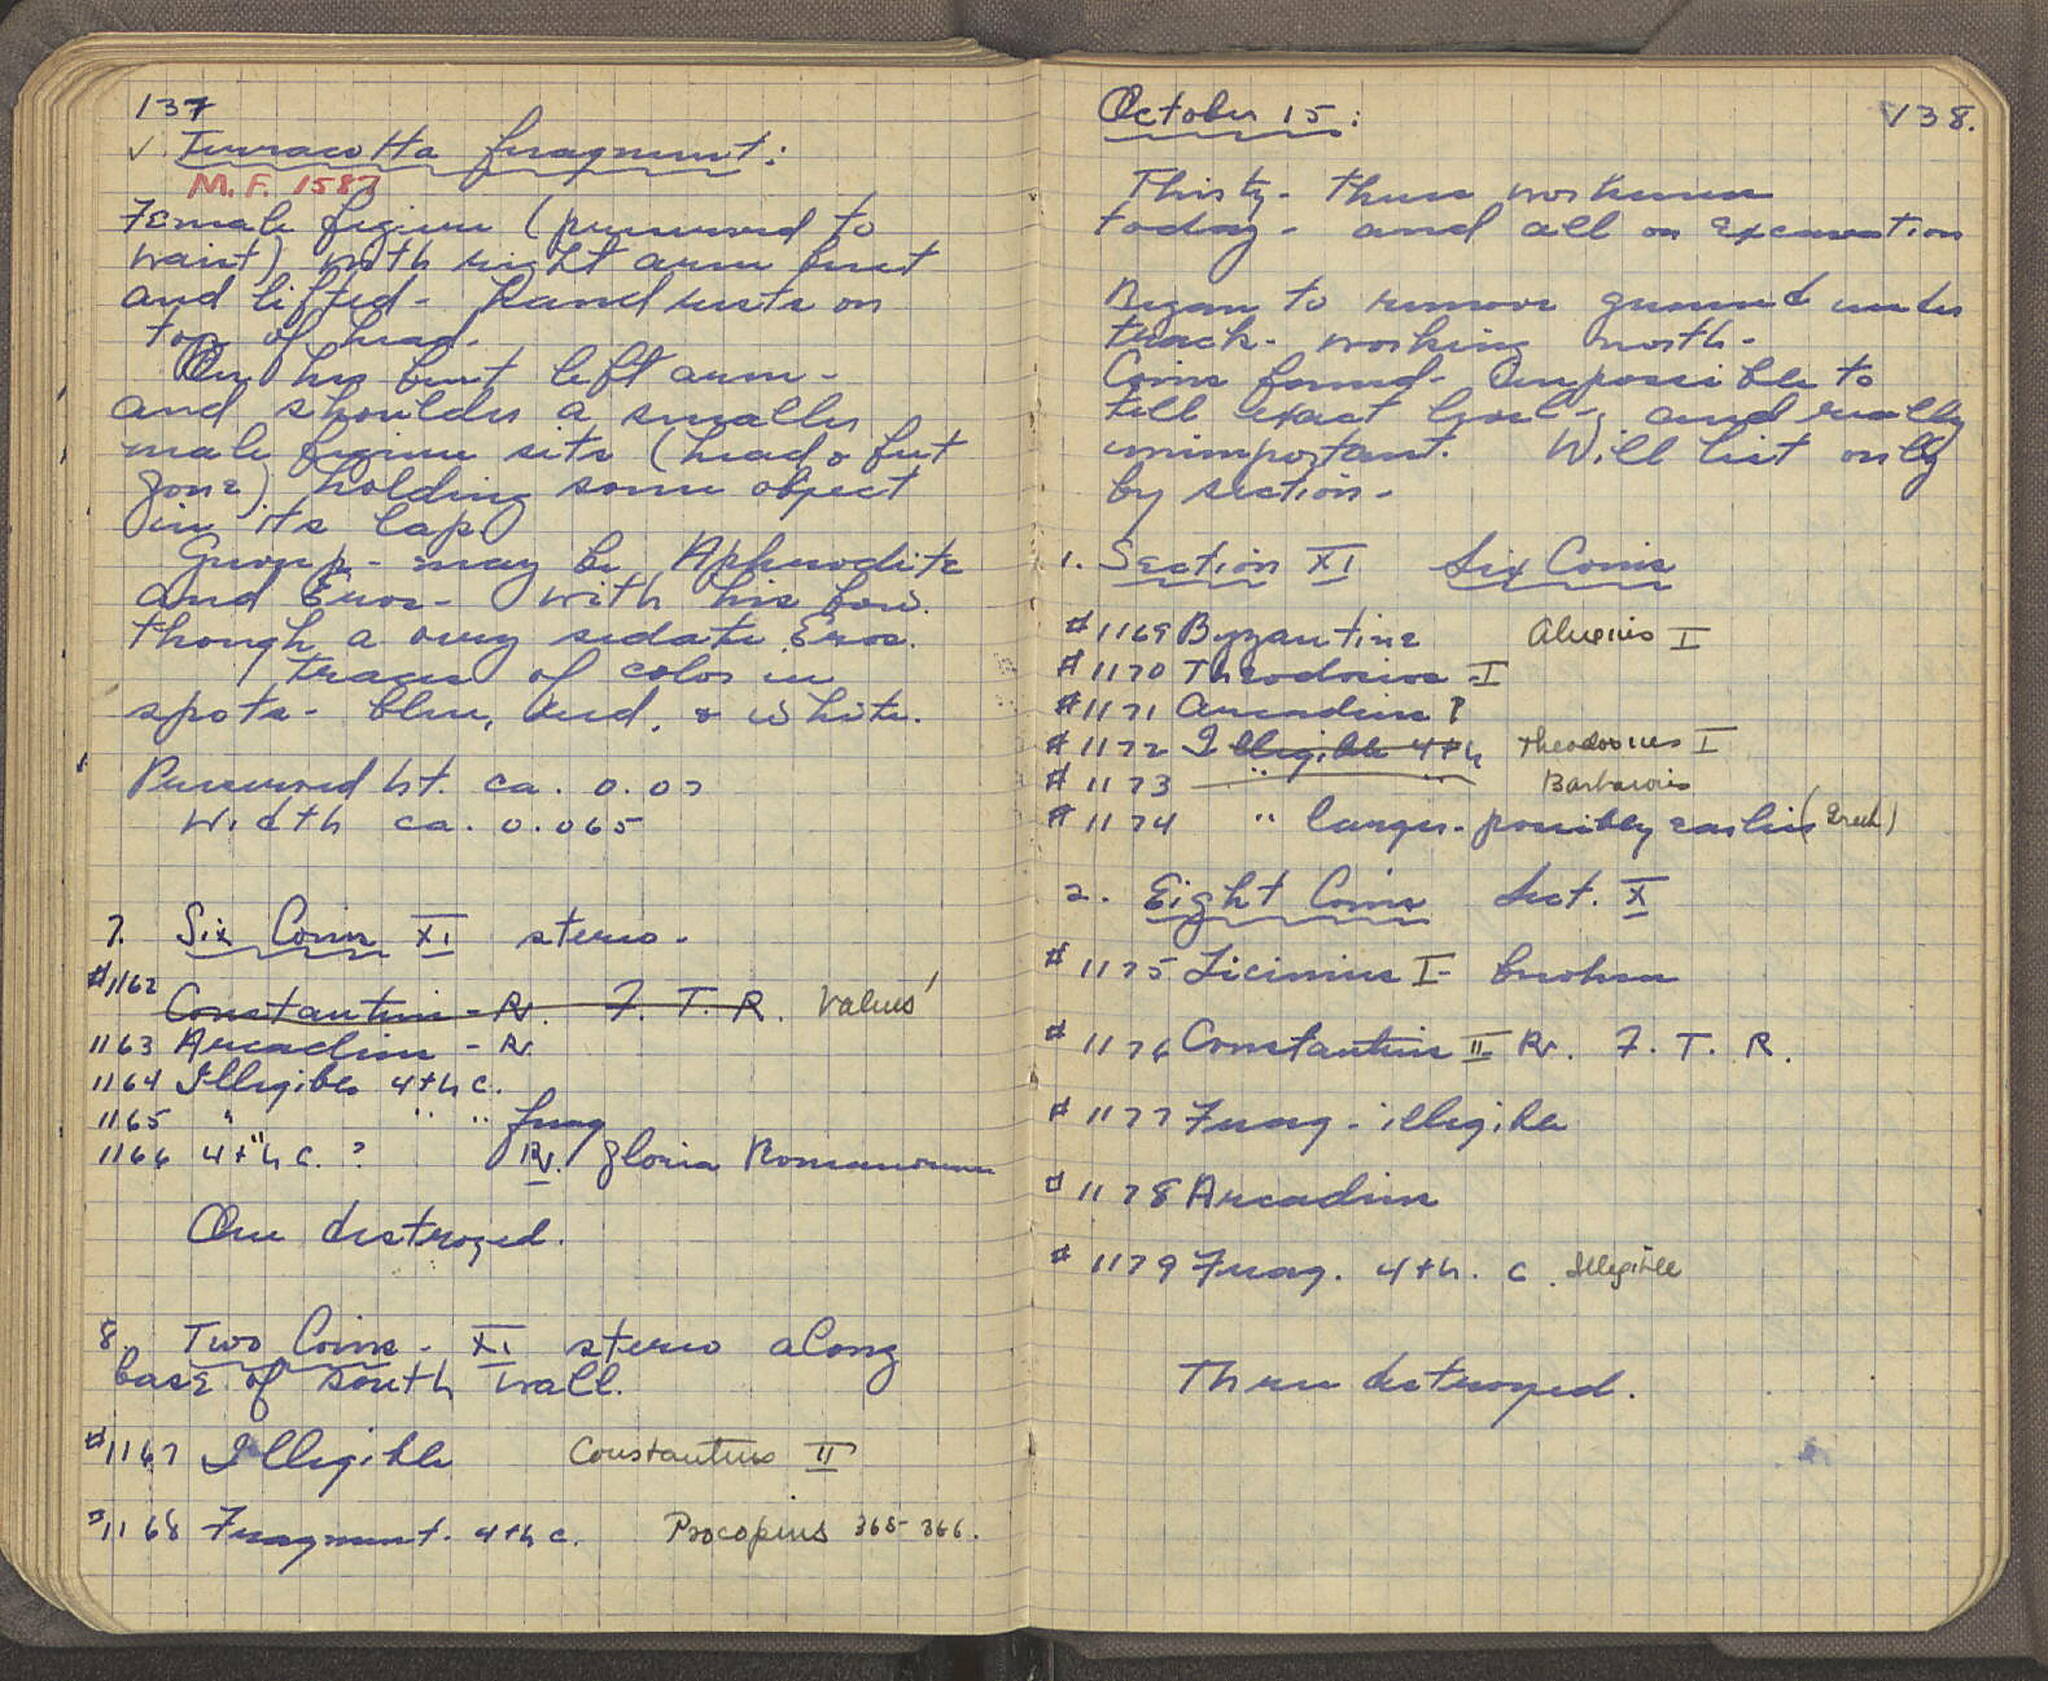 137
✓ Terracotta fragment:
M.F. 1587
Female figure (preserved to
waist) with right arm bent
and lifted - hand rests on
top of head.
On her bent left arm -
and shoulder a smaller
male figure sits (head & feet
gone) holding some object
in its lap
Group - may be Aphrodite
and Eros - with his bow.
though a very sedate Eros.
traces of color in
spots - blue, red, & white.
Preserved ht. ca. 0.07
Width ca. 0.065
7. Six Coins XI stereo -
#1162
Constantine - Rv. F. T. R. Valens
1163 Arcadius - Rv.
1164 Illegible 4th c.
1165 " " " frag
1166 4th c. ? Rv. Gloria Romanorum
One destroyed.
8. Two Coins - XI stereo along
base of south wall.
#1167 Illegible Constantius II
#1168 Fragment. 4th c. Procopius 365-366.
138.
October 15:
Thirty-three workmen
today - and all on excavation
Began to remove ground under
track - working north -
Coins found - impossible to
tell exact level -, and really
unimportant. Will list only
by section -
1. Section XI Six Coins
#1169 Byzantine Alexius I
#1170 Theodosius I
#1171 Arcadius ?
#1172 Illegible 4th Theodosius I
#1173 " " Barbarous
#1174 " larger - possibly earlier (Greek)
2. Eight Coins Sect. X
#1175 Licinius I - broken
#1176 Constantius II Rv. F. T. R.
#1177 Frag - illegible
#1178 Arcadius
#1179 Frag. 4th. c. Illegible
Three destroyed.